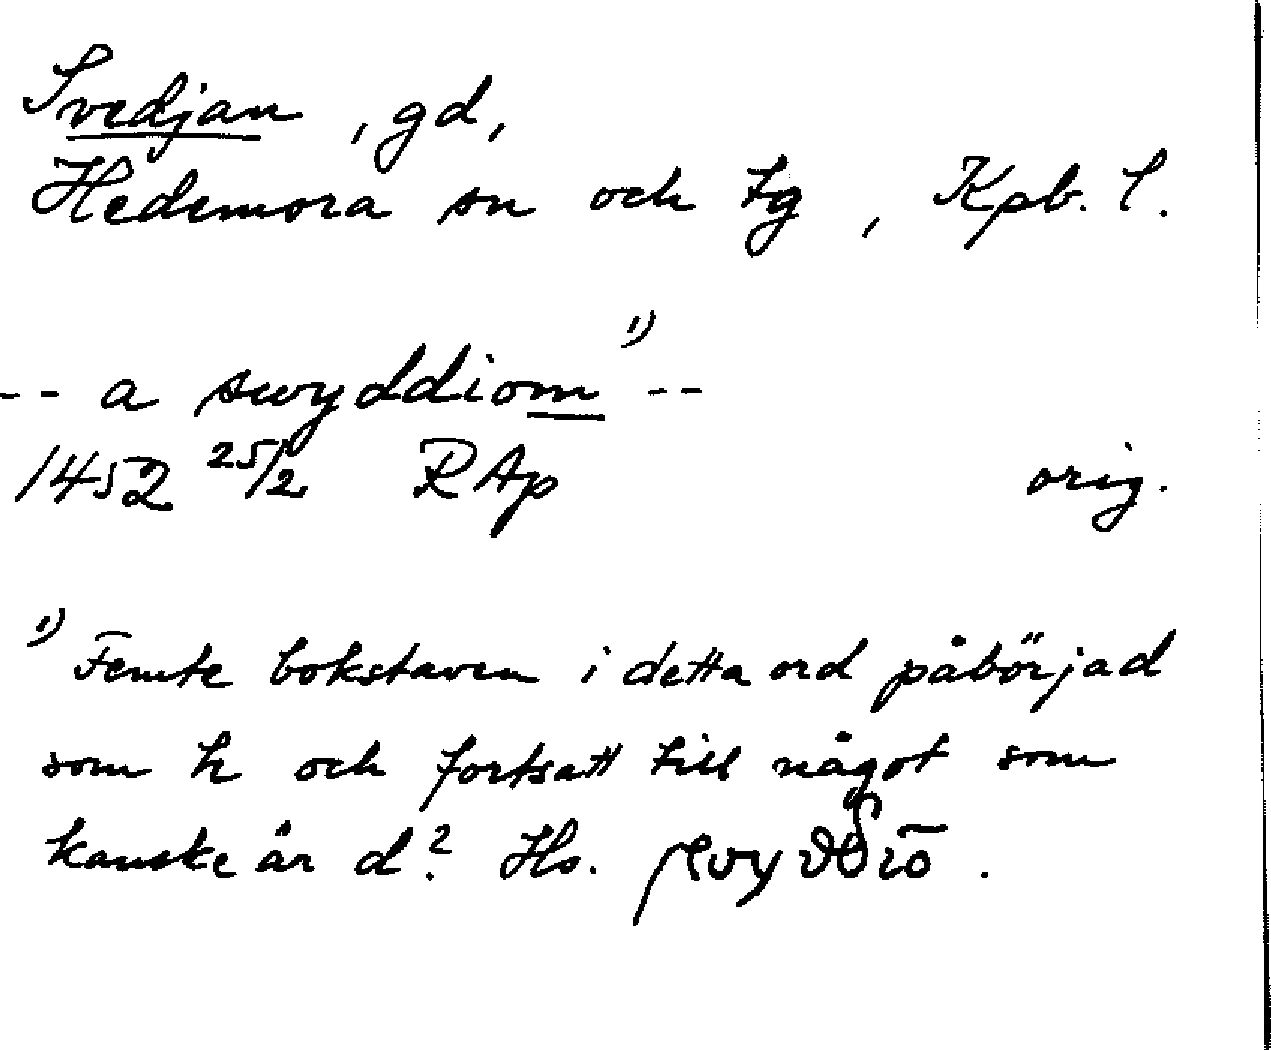 Svedjan, gd,
Hedemora sn och tg, Kpb. l.
-- a swyddiom ¹) --
1452 25/2 RAp orig.
¹) Femte bokstaven i detta ord påbörjad
som h och fortsatt till något som
kanske är d? Hs. swyddiō.